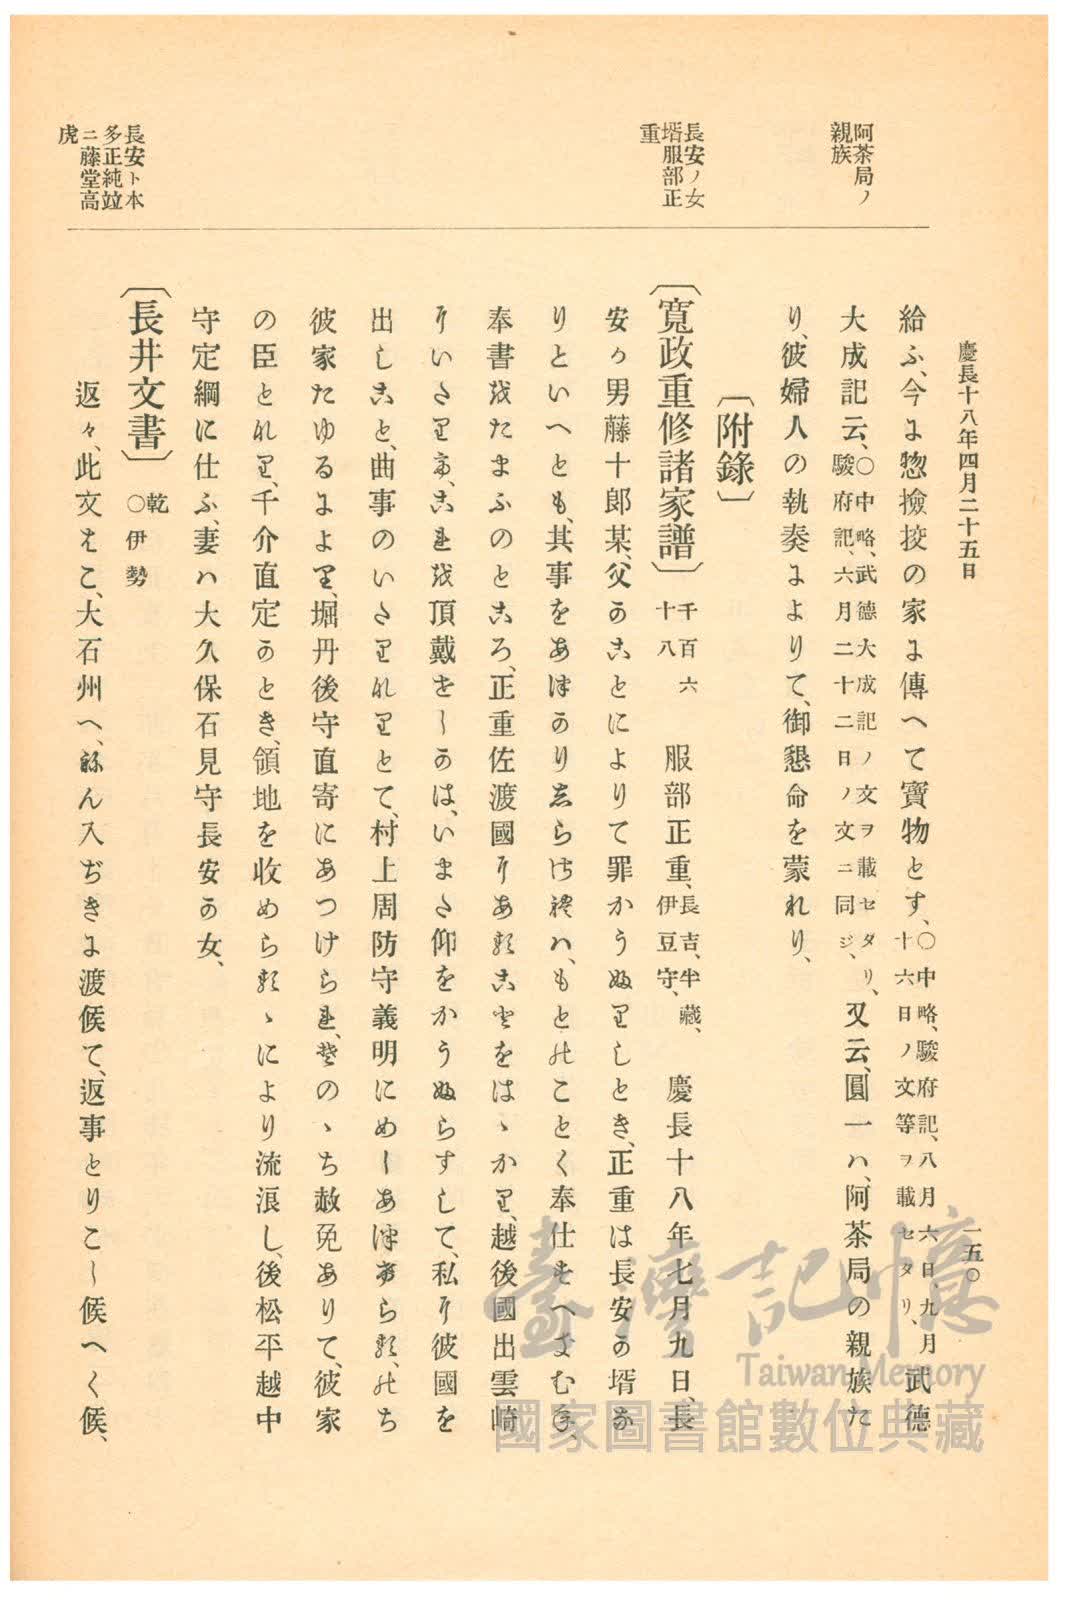 慶長十八年四月二十五日
一五〇
阿茶局ノ
親族
長安ノ女
壻服部正
重
長安ト本
多正純竝
ニ藤堂高
虎
給ふ、今に惣撿挍の家に傳へて寶物とす、〇中略、駿府記、八月六日、九月十六日ノ文等ヲ載セタリ、武德
大成記云、〇中略、武德大成記ノ文ヲ載セタリ、駿府記、六月二十二日ノ文ニ同ジ、又云、圓一ハ、阿茶局の親族た
り、彼婦人の執奏によりて、御懇命を蒙れり、
〔附錄〕
〔寬政重修諸家譜〕千百六十八 服部正重、長吉、半藏、伊豆守、 慶長十八年七月九日、長
安か男藤十郎某、父のことによりて罪かうふりしとき、正重は長安の壻な
りといへとも、其事をあつかりしらされハ、もとのことく奉仕すへきむね、
奉書をたまふのところ、正重佐渡國にあることをはゝかり、越後國出雲崎
にいたりて、これを頂戴せしかは、いまた仰をかうふらすして、私に彼國を
出しこと、曲事のいたりなりとて、村上周防守義明にめしあつけらる、のち
彼家たゆるにより、堀丹後守直寄にあつけられ、そのゝち赦免ありて、彼家
の臣となり、千介直定のとき、領地を收めらるゝにより流浪し、後松平越中
守定綱に仕ふ、妻ハ大久保石見守長安の女、
〔長井文書〕乾 〇伊勢
返々、此文はこ、大石州へ、ねん入ぢきに渡候て、返事とりこし候へく候、
臺灣記憶
Taiwan Memory
國家圖書館數位典藏